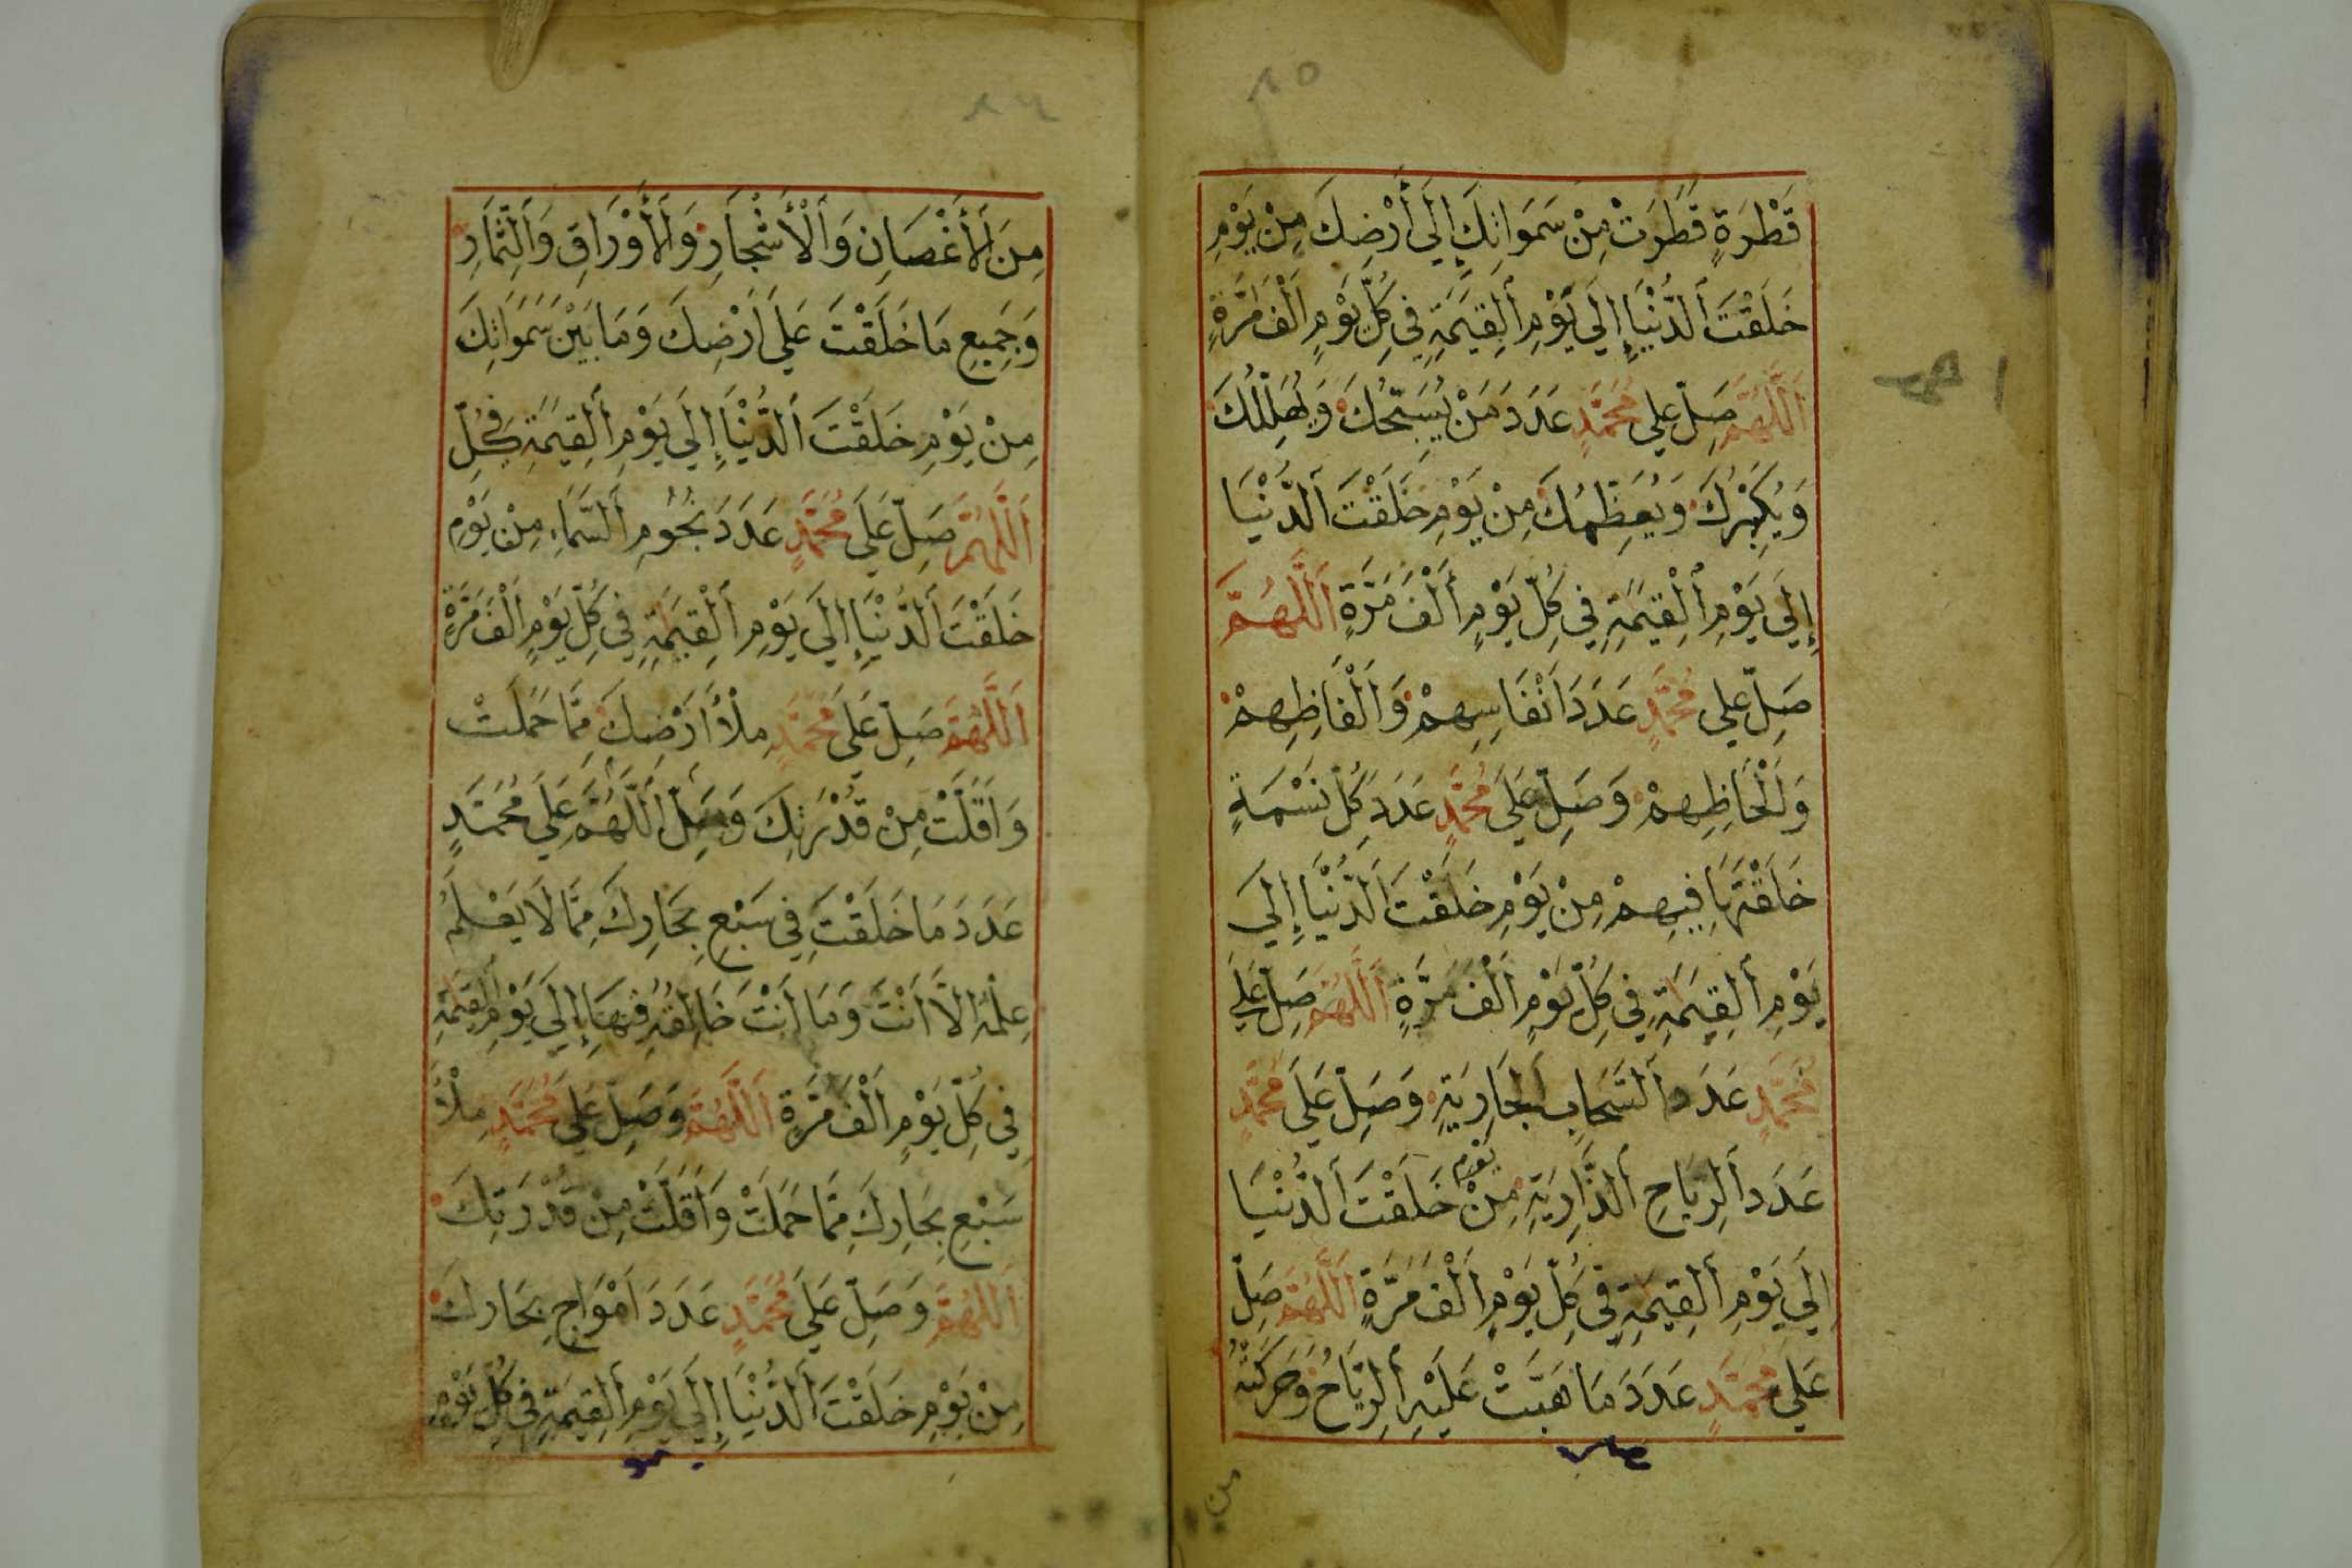 ٨٥
قَطْرَةٍ قَطَرَتْ مِنْ سَمَوَاتِكَ إِلَى أَرْضِكَ مِنْ يَوْمِ
خَلَقْتَ اَلدُّنْيَا إِلَى يَوْمِ اَلْقِيَمَةِ فِي كُلِّ يَوْمٍ اَلْفَ مَرَّةٍ
اَللَّهُمَّ صَلِّ عَلَى مُحَمَّدٍ عَدَدَ مَنْ يُسَبِّحُكَ وَيُهَلِّلُكَ
وَيُكَبِّرُكَ وَيُعَظِّمُكَ مِنْ يَوْمِ خَلَقْتَ اَلدُّنْيَا
إِلَى يَوْمِ اَلْقِيَمَةِ فِي كُلِّ يَوْمٍ اَلْفَ مَرَّةٍ اَللَّهُمَّ
صَلِّ عَلَى مُحَمَّدٍ عَدَدَ اَنْفَاسِهِمْ وَاَلْفَاظِهِمْ
وَاَلْحَاظِهِمْ وَصَلِّ عَلَى مُحَمَّدٍ عَدَدَ كُلِّ نَسْمَةٍ
خَلَقْتَهَا فِيهِمْ مِنْ يَوْمِ خَلَقْتَ اَلدُّنْيَا إِلَى
يَوْمِ اَلْقِيَمَةِ فِي كُلِّ يَوْمٍ اَلْفَ مَرَّةٍ اَللَّهُمَّ صَلِّ عَلَى
مُحَمَّدٍ عَدَدَ اَلسَّحَابِ اَلْجَارِيَةِ وَصَلِّ عَلَى مُحَمَّدٍ
عَدَدَ اَلرِّيَاحِ اَلذَّارِيَةِ مِنْ يَوْمِ خَلَقْتَ اَلدُّنْيَا
إِلَى يَوْمِ اَلْقِيَمَةِ فِي كُلِّ يَوْمٍ اَلْفَ مَرَّةٍ اَللَّهُمَّ صَلِّ
عَلَى مُحَمَّدٍ عَدَدَ مَا هَبَّتْ عَلَيْهِ اَلرِّيَاحُ وَحَرَّكَتْهُ
من
٨٦
مِنَ اَلْأَغْصَانِ وَاَلْأَشْجَارِ وَاَلْأَوْرَاقِ وَاَلثِّمَارِ
وَجَمِيعِ مَا خَلَقْتَ عَلَى اَرْضِكَ وَمَا بَيْنَ سَمَوَاتِكَ
مِنْ يَوْمِ خَلَقْتَ اَلدُّنْيَا إِلَى يَوْمِ اَلْقِيَمَةِ فِي كُلِّ
اَللَّهُمَّ صَلِّ عَلَى مُحَمَّدٍ عَدَدَ نُجُومِ اَلسَّمَاءِ مِنْ يَوْمِ
خَلَقْتَ اَلدُّنْيَا إِلَى يَوْمِ اَلْقِيَمَةِ فِي كُلِّ يَوْمٍ اَلْفَ مَرَّةٍ
اَللَّهُمَّ صَلِّ عَلَى مُحَمَّدٍ مِلْأَ اَرْضِكَ مِمَّا حَمَلَتْ
وَاَقَلَّتْ مِنْ قُدْرَتِكَ وَصَلِّ اَللَّهُمَّ عَلَى مُحَمَّدٍ
عَدَدَ مَا خَلَقْتَ فِي سَبْعِ بِحَارِكَ مِمَّا لَا يَعْلَمُ
عِلْمَهُ اِلَّا اَنْتَ وَمَا اَنْتَ خَالِقُهُ فِيهَا إِلَى يَوْمِ اَلْقِيَمَةِ
فِي كُلِّ يَوْمٍ اَلْفَ مَرَّةٍ اَللَّهُمَّ وَصَلِّ عَلَى مُحَمَّدٍ مِلْأَ
سَبْعِ بِحَارِكَ مِمَّا حَمَلَتْ وَاَقَلَّتْ مِنْ قُدْرَتِكَ
اَللَّهُمَّ وَصَلِّ عَلَى مُحَمَّدٍ عَدَدَ اَمْوَاجِ بِحَارِكَ
مِنْ يَوْمِ خَلَقْتَ اَلدُّنْيَا إِلَى يَوْمِ اَلْقِيَمَةِ فِي كُلِّ يَوْمٍ